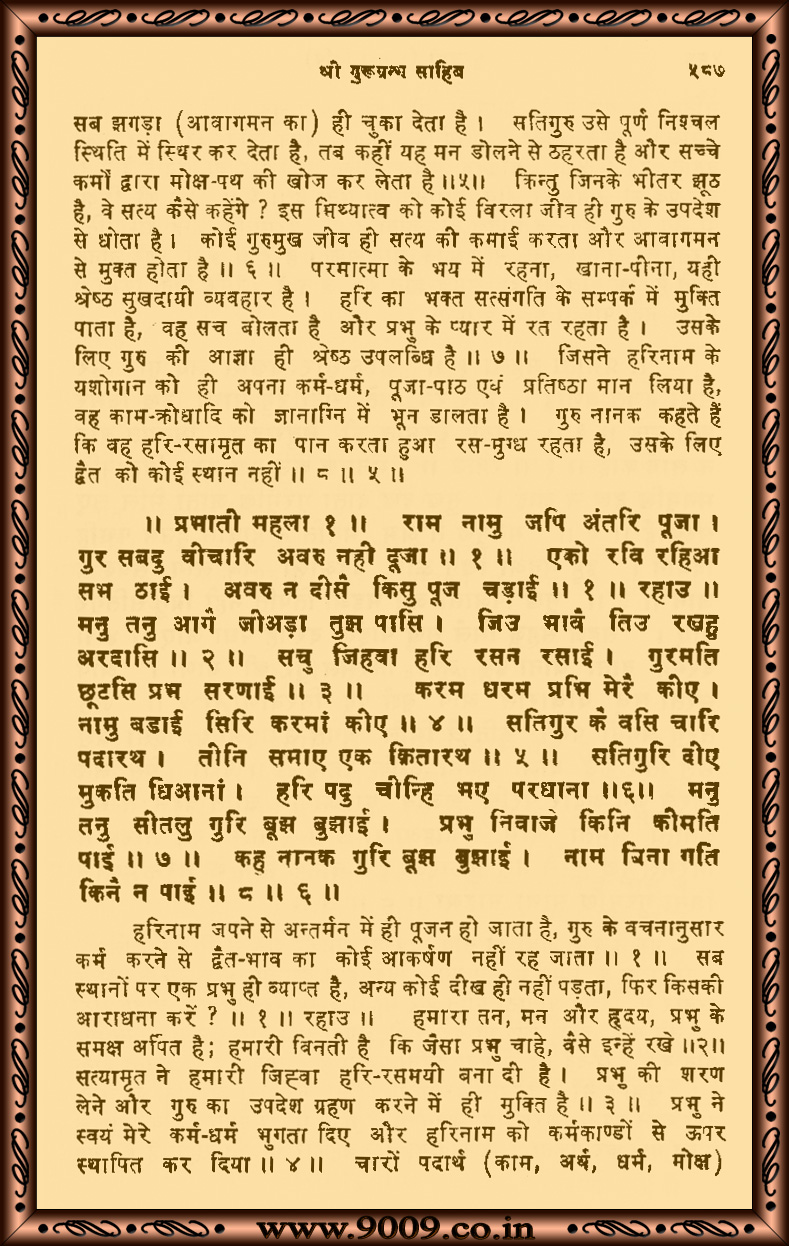 श्री गुरूग्रन्थ साहिब ५८७
सब झगड़ा (आवागमन का) ही चुका देता है । सतिगुरु उसे पूर्ण निश्चल
स्थिति में स्थिर कर देता है, तब कहीं यह मन डोलने से ठहरता है और सच्चे
कर्मों द्वारा मोक्ष-पथ की खोज कर लेता है ॥५॥ किन्तु जिनके भीतर झूठ
है, वे सत्य कैसे कहेंगे ? इस मिथ्यात्व को कोई विरला जीव ही गुरु के उपदेश
से धोता है । कोई गुरुमुख जीव ही सत्य की कमाई करता और आवागमन
से मुक्त होता है ॥ ६ ॥ परमात्मा के भय में रहना, खाना-पीना, यही
श्रेष्ठ सुखदायी व्यवहार है । हरि का भक्त सत्संगति के सम्पर्क में मुक्ति
पाता है, वह सच बोलता है और प्रभु के प्यार में रत रहता है । उसके
लिए गुरु की आज्ञा ही श्रेष्ठ उपलब्धि है ॥ ७ ॥ जिसने हरिनाम के
यशोगान को ही अपना कर्म-धर्म, पूजा-पाठ एवं प्रतिष्ठा मान लिया है,
वह काम-क्रोधादि को ज्ञानाग्नि में भून डालता है । गुरु नानक कहते हैं
कि वह हरि-रसामृत का पान करता हुआ रस-मुग्ध रहता है, उसके लिए
द्वैत को कोई स्थान नहीं ॥ ८ ॥ ५ ॥
॥ प्रभाती महला १ ॥ राम नामु जपि अंतरि पूजा ।
गुर सबदु वीचारि अवरु नही दूजा ॥ १ ॥ एको रवि रहिआ
सभ ठाई । अवरु न दीसै किसु पूज चड़ाई ॥ १ ॥ रहाउ ॥
मनु तनु आगै जीअड़ा तुझ पासि । जिउ भावै तिउ रखहु
अरदासि ॥ २ ॥ सचु जिहवा हरि रसन रसाई । गुरमति
छूटसि प्रभ सरणाई ॥ ३ ॥ करम धरम प्रभि मेरै कीए ।
नामु बडाई सिरि करमां कीए ॥ ४ ॥ सतिगुर कै वसि चारि
पदारथ । तीनि समाए एक क्रितारथ ॥ ५ ॥ सतिगुरि दीए
मुकति धिआनां । हरि पदु चीन्हि भए परधाना ॥६॥ मनु
तनु सीतलु गुरि बूझ बुझाई । प्रभु निवाजे किनि कीमति
पाई ॥ ७ ॥ कहु नानक गुरि बूझ बुझाई । नाम बिना गति
किनै न पाई ॥ ८ ॥ ६ ॥
हरिनाम जपने से अन्तर्मन में ही पूजन हो जाता है, गुरु के वचनानुसार
कर्म करने से द्वैत-भाव का कोई आकर्षण नहीं रह जाता ॥ १ ॥ सब
स्थानों पर एक प्रभु ही व्याप्त है, अन्य कोई दीख ही नहीं पड़ता, फिर किसकी
आराधना करें ? ॥ १ ॥ रहाउ ॥ हमारा तन, मन और हृदय, प्रभु के
समक्ष अर्पित है; हमारी विनती है कि जैसा प्रभु चाहे, वैसे इन्हें रखे ॥२॥
सत्यामृत ने हमारी जिह्वा हरि-रसमयी बना दी है । प्रभु की शरण
लेने और गुरु का उपदेश ग्रहण करने में ही मुक्ति है ॥ ३ ॥ प्रभु ने
स्वयं मेरे कर्म-धर्म भुगता दिए और हरिनाम को कर्मकाण्डों से ऊपर
स्थापित कर दिया ॥ ४ ॥ चारों पदार्थ (काम, अर्थ, धर्म, मोक्ष)
www.9009.co.in